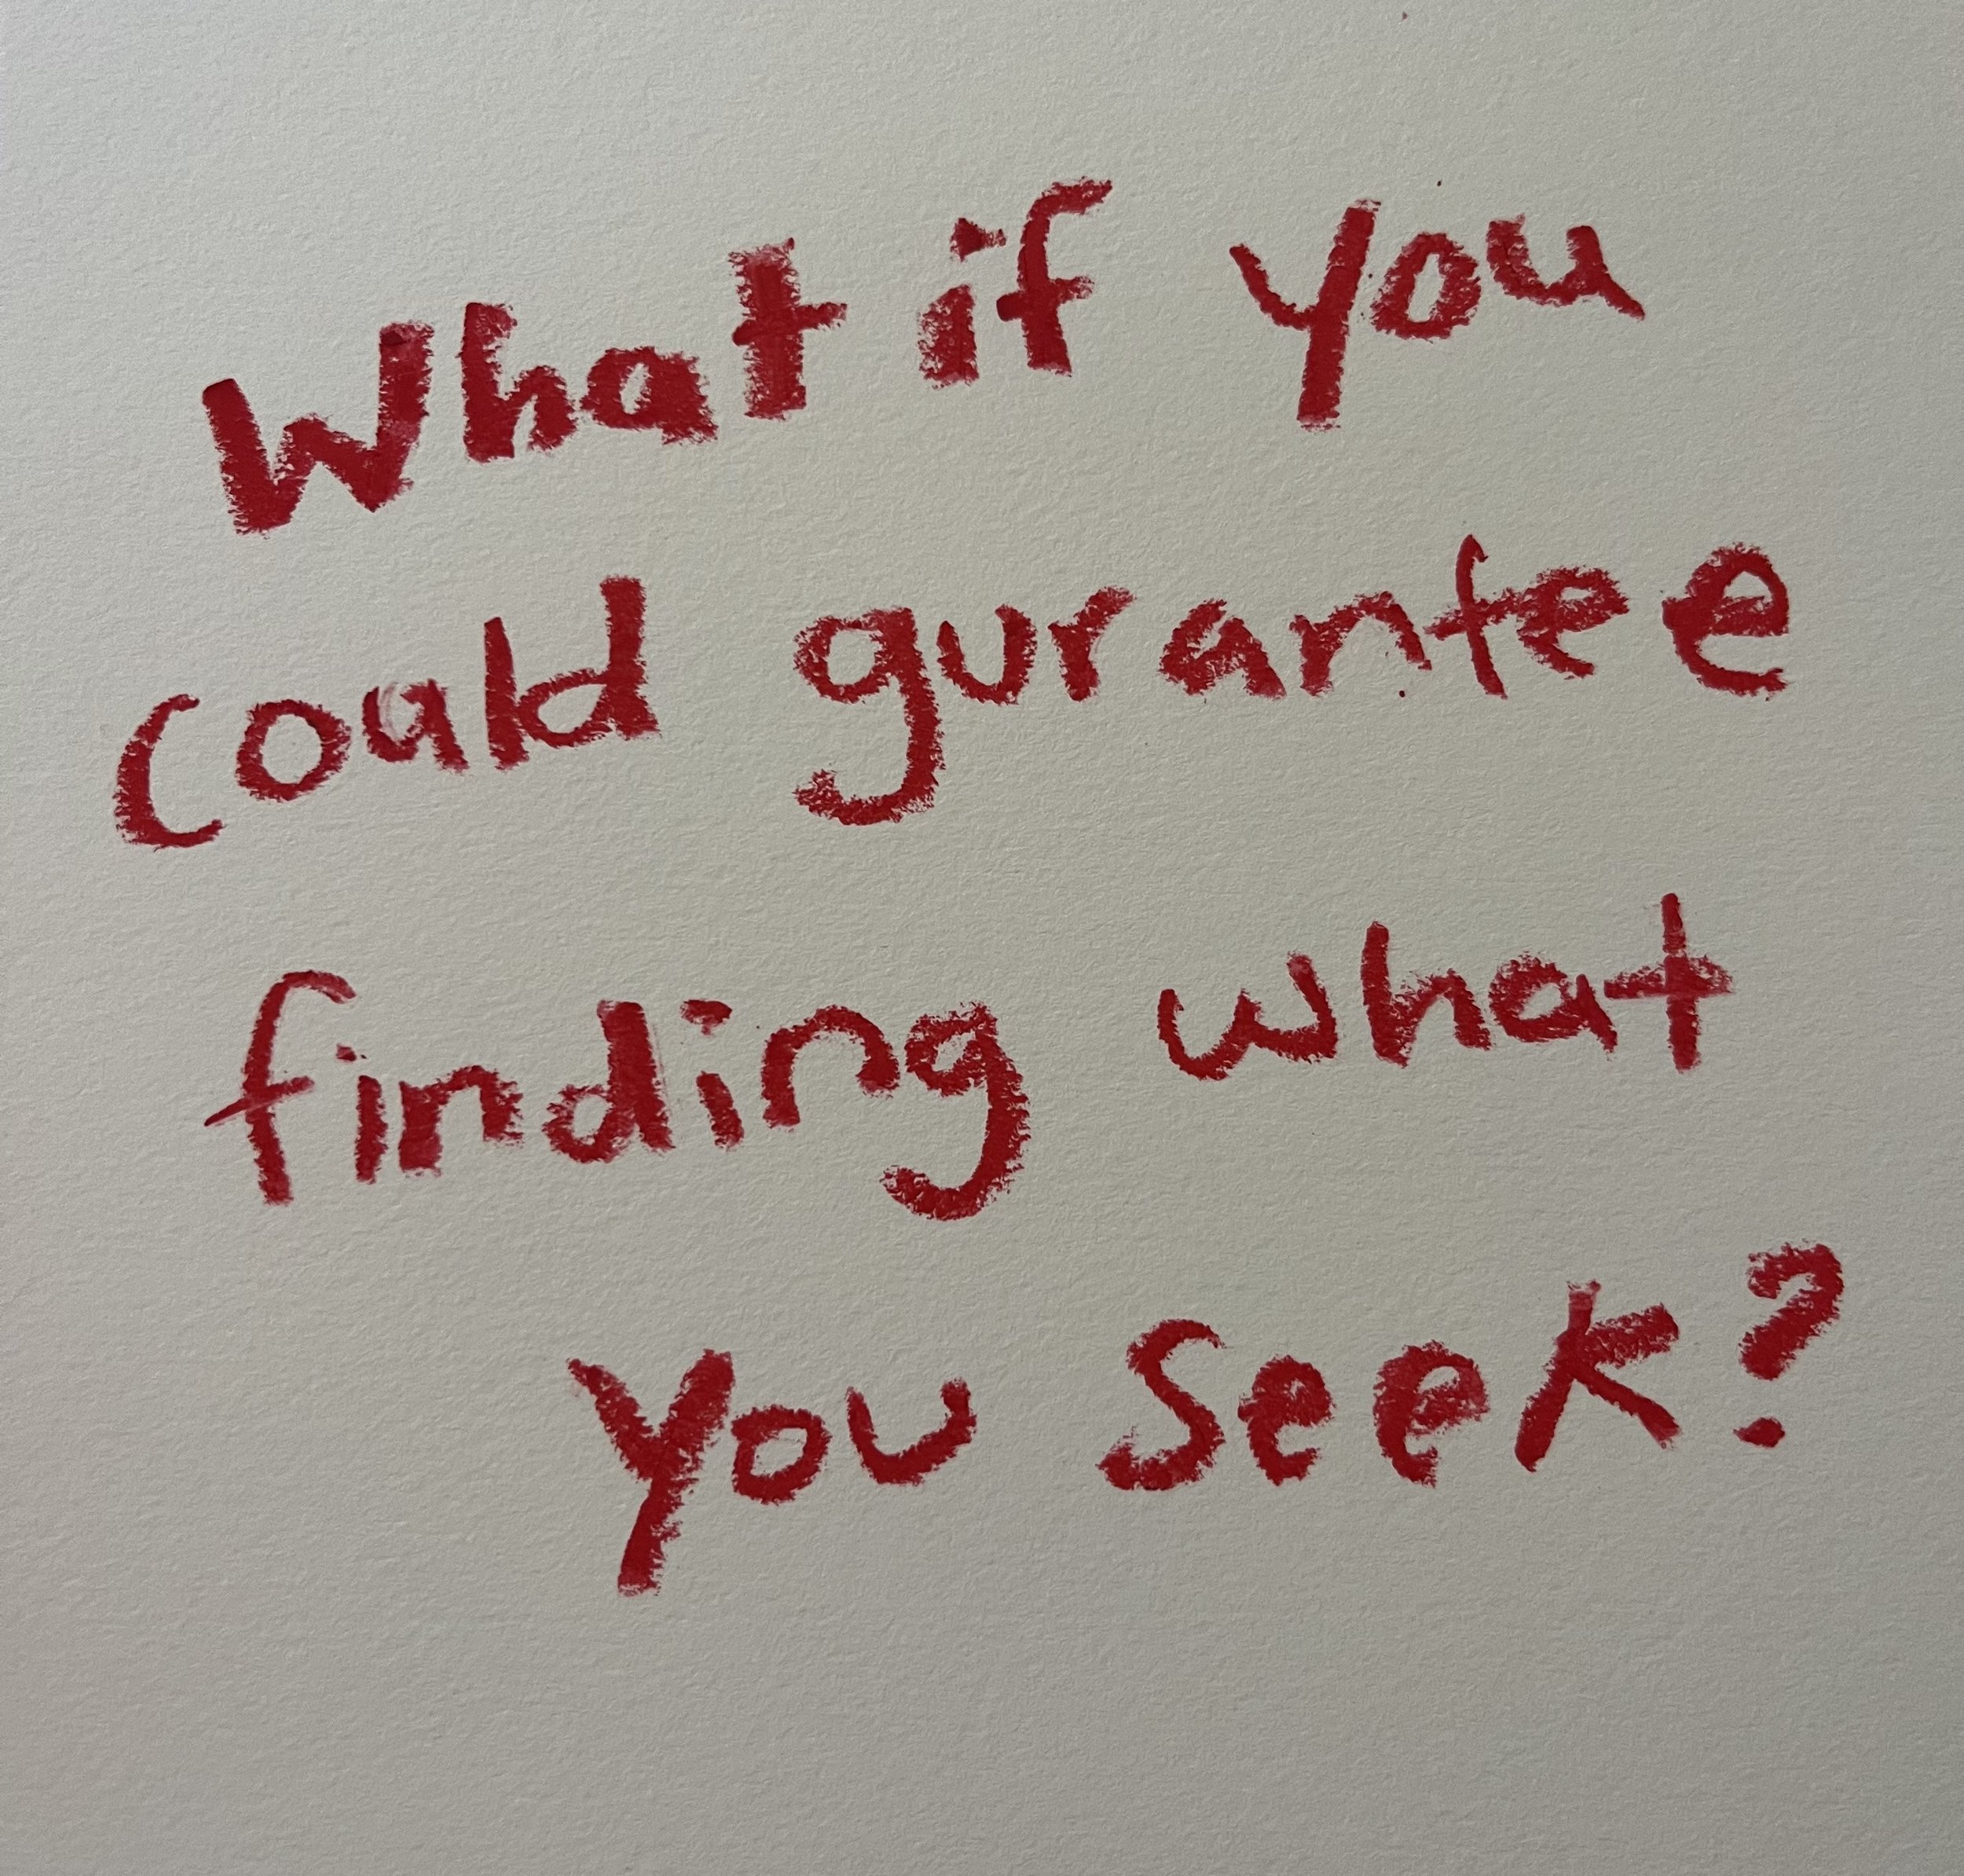 What if you
could gurantee
finding what
you seek?